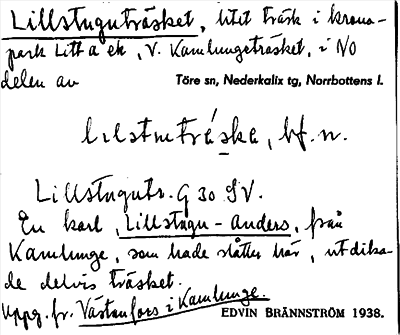 Lillstuguträsket, litet träsk i krono-
park Litt a ek, V. Kamlungeträsket, i NO
delen av Töre sn, Nederkalix tg, Norrbottens l.
lilstuträska, bf. n.
Lillstugutr. G 30 SV.
En karl, Lillstugu-Anders, från
Kamlunge, som hade slåtter här, utdika-
de delvis träsket.
Uppg. fr. Västanfors i Kamlunge.
EDVIN BRÄNNSTRÖM 1938.